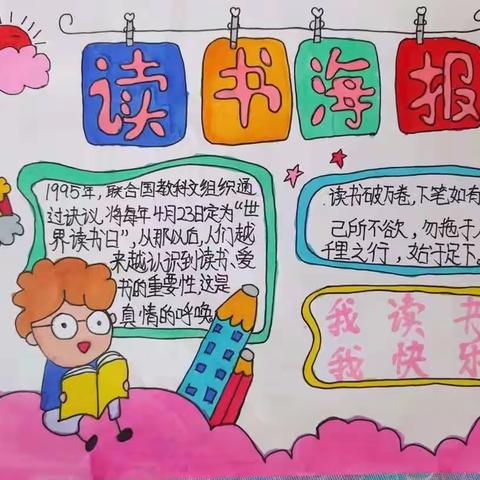 读书海报
1995年，联合国教科文组织通
过诀议，将每年4月23日定为“世
界读书日”，从那以后，人们越
来越认识到读书、爱
书的重要性这是
真情的呼唤
读书破万卷，下笔如有
己所不欲，勿拖于人
千里之行，始于足下。
我读书
我快乐